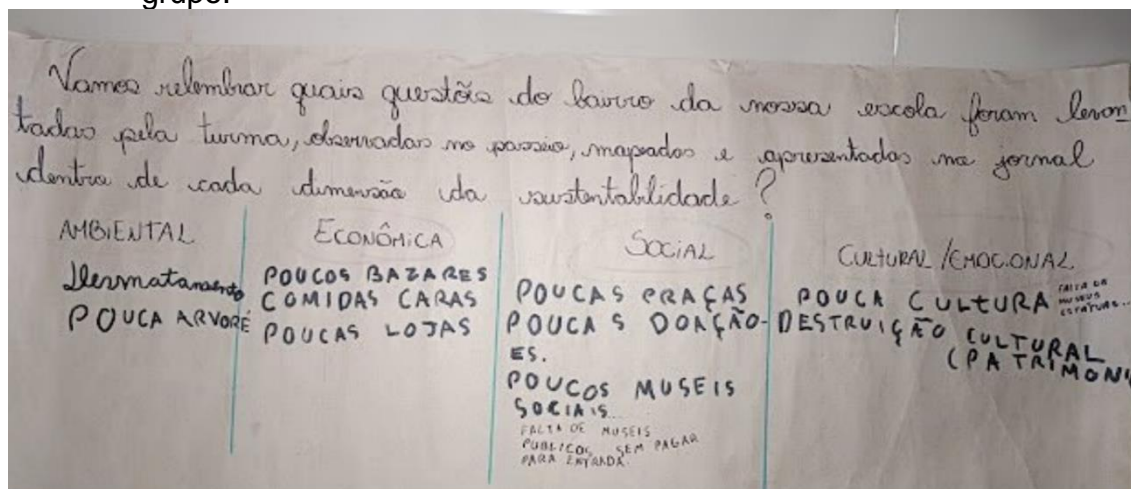 grupo.
Vamos relembrar quais questões do bairro da nossa escola foram levan
tadas pela turma, observadas no passeio, mapeados e apresentadas no jornal
dentro de cada dimensão da sustentablidade?
AMBIENTAL
Desmatamento
POUCA ARVORE
ECONÔMICA
POUCOS BAZARES
COMIDAS CARAS
POUCAS LOJAS
SOCIAL
POUCAS PRAÇAS
POUCAS DOAÇÃO-
ES.
POUCOS MUSEIS
SOCIAIS...
FALTA DE MUSEIS
PUBLICOS, SEM PAGAR
PARA ENTRADA.
CULTURAL/EMOCIONAL
POUCA CULTURA
FALTA DE
MUSEUS
ESTATUAS...
DESTRUIÇÃO CULTURAL
(PATRIMONI